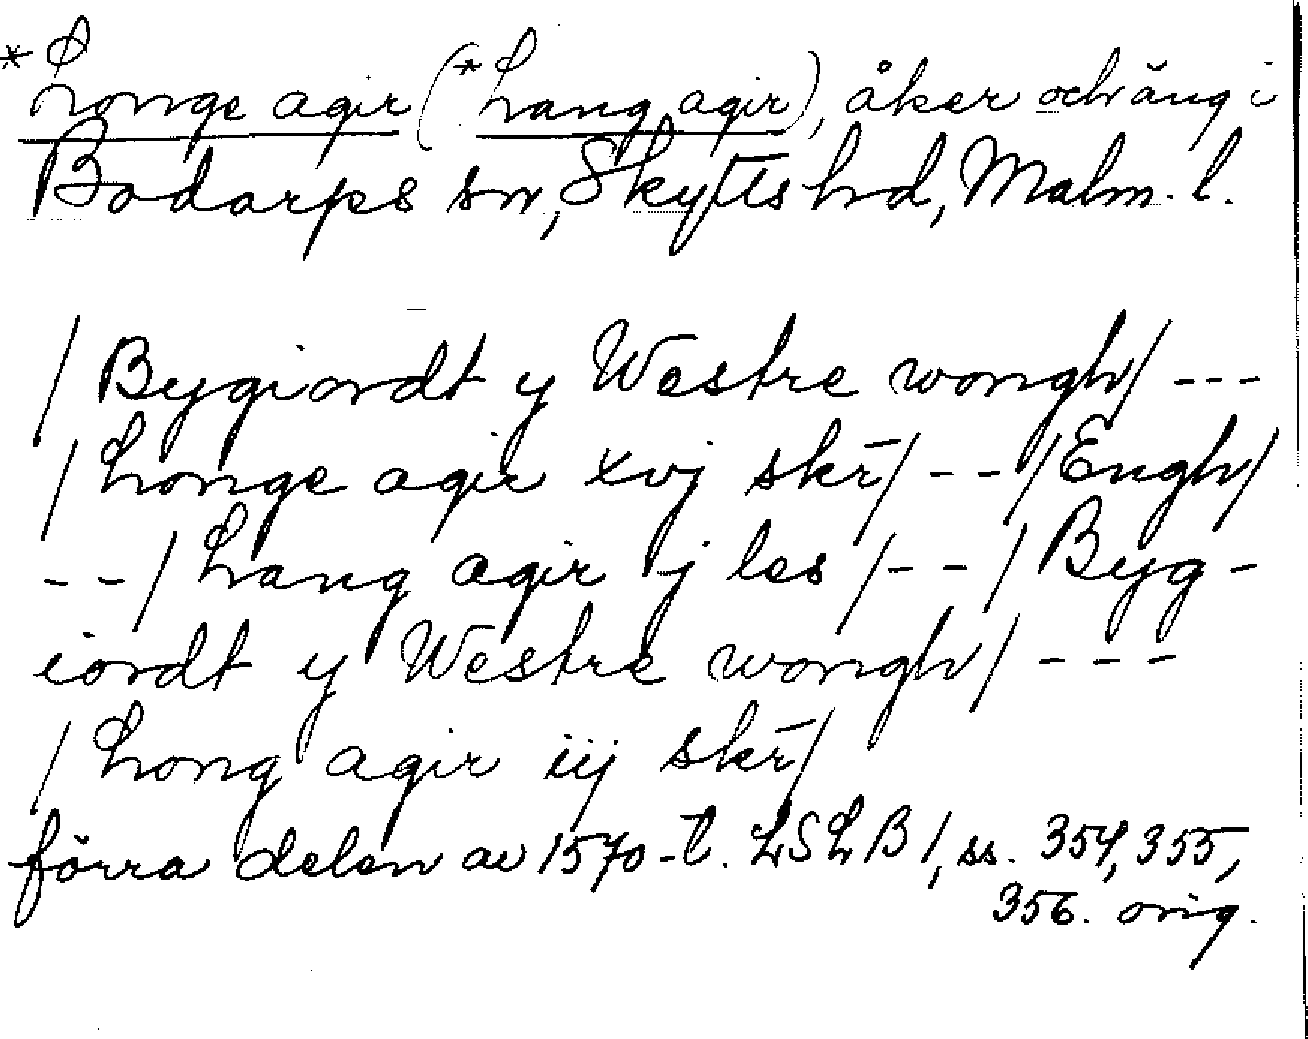 *Longe agir (*Lang agir), åker och äng i
Bodarps sn, Skytts hd, Malm. l.
/ Bygiordt y Westre wongh/ ---
/ Longe agir xvj skr̄/ -- /Engh/
--/ Lang agir j les /--/ Byg-
iordt y Westre wongh/ ---
/ Long agir iij skr̄/
förra delen av 1570-t. LSLB 1, ss. 354, 355,
356. orig.